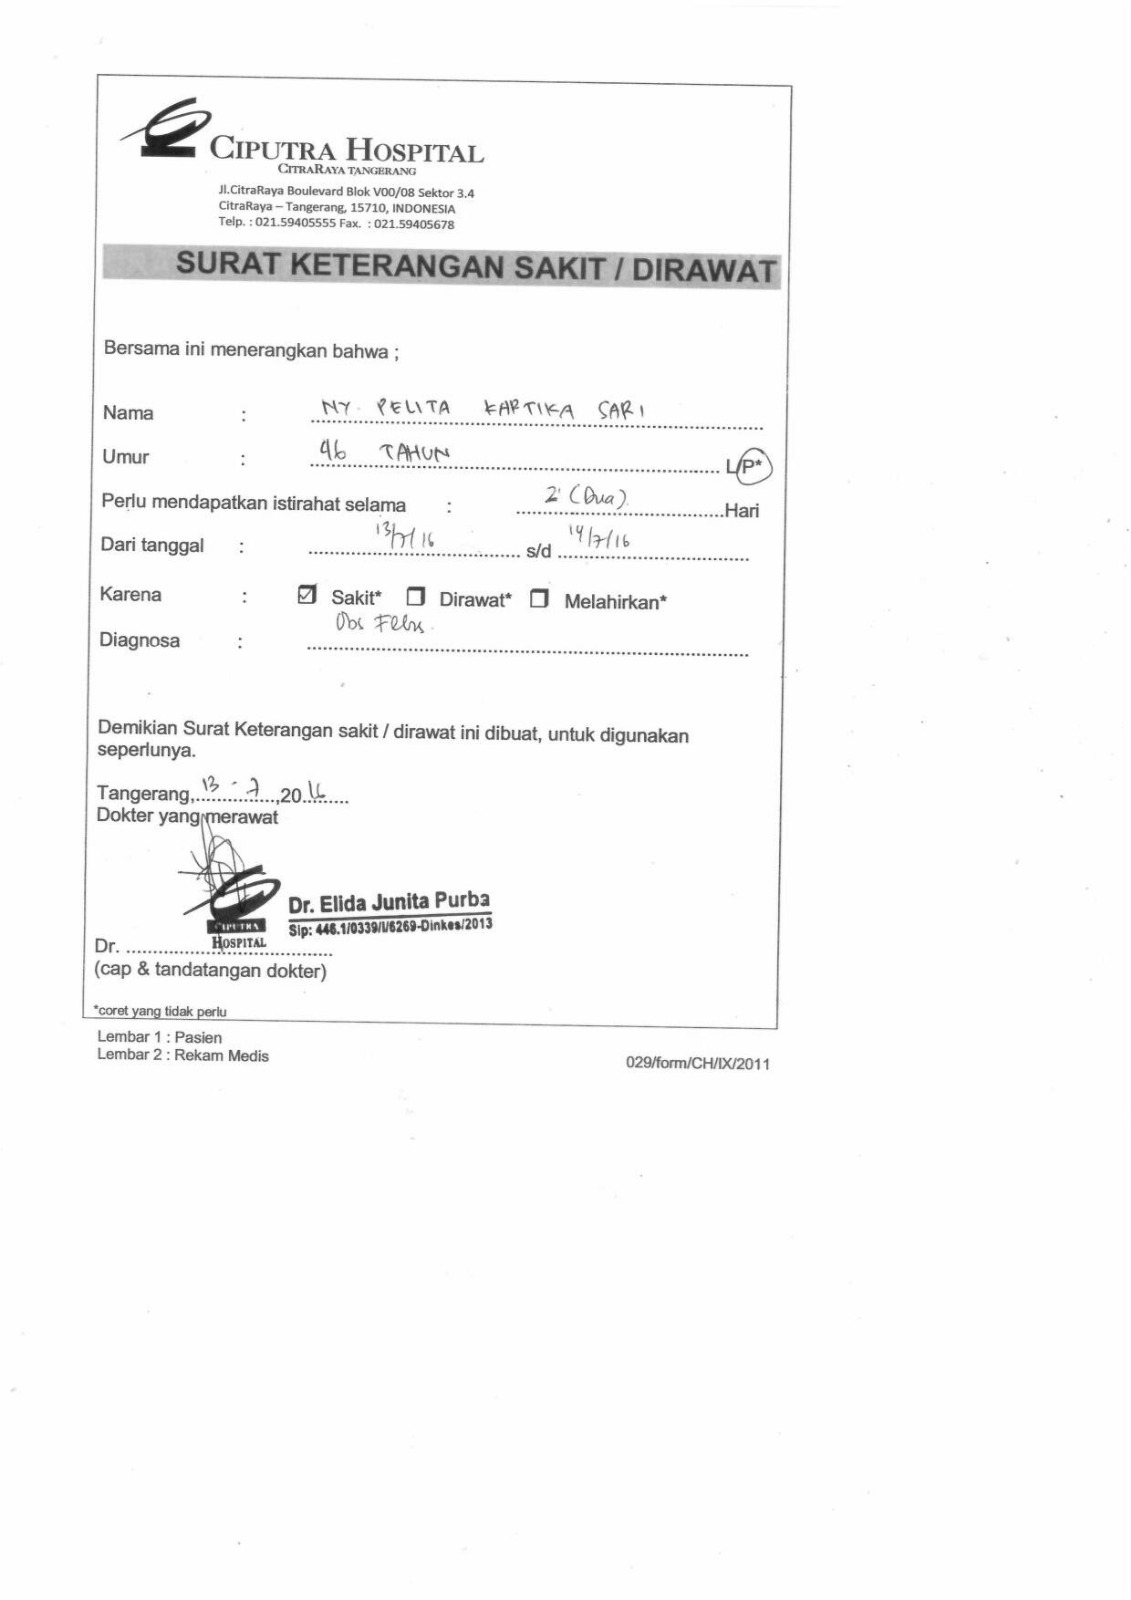 CIPUTRA HOSPITAL
CITRARAYA TANGERANG
Jl.CitraRaya Boulevard Blok V00/08 Sektor 3.4
CitraRaya – Tangerang, 15710, INDONESIA
Telp. : 021.59405555 Fax. : 021.59405678
SURAT KETERANGAN SAKIT / DIRAWAT
Bersama ini menerangkan bahwa ;
Nama : NY. PELITA KARTIKA SARI
Umur : 46 TAHUN L/P*
Perlu mendapatkan istirahat selama : 2 (Dua) Hari
Dari tanggal : 13/7/16 s/d 14/7/16
Karena : ☑ Sakit* ☐ Dirawat* ☐ Melahirkan*
Diagnosa : Obs Febris
Demikian Surat Keterangan sakit / dirawat ini dibuat, untuk digunakan
seperlunya.
Tangerang, 13 - 7 ,2016
Dokter yang merawat
CIPUTRA
HOSPITAL
Dr. Elida Junita Purba
Sip: 446.1/0339/I/6269-Dinkes/2013
Dr. ....................................
(cap & tandatangan dokter)
*coret yang tidak perlu
Lembar 1 : Pasien
Lembar 2 : Rekam Medis
029/form/CH/IX/2011